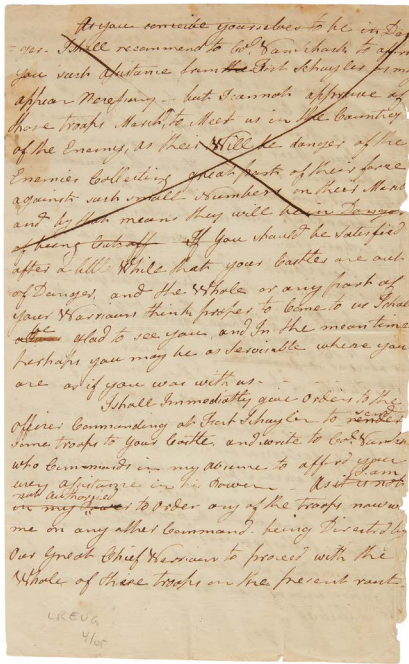 As you conceive yourselves to be in Dan
=ger. I shall recommend to Col. Van Schaick to afford
you such assistance from the Fort Schuyler as may
appear Necessary - but I cannot approve of
those troops March.g to Meet us in the Country
of the Enemy, as their Will be danger of the
Enemies Collecting great parts of their force
against such small Numbers on their March
and by that means they will be in Danger
of being Cut off If You should be Satisfied
after a little While that your Castles are out
of Danger, and the Whole or any part of
your Warriours think proper to Come to us I shall
be glad to see you, and In the mean time
perhaps you may be as Servisable where you
are as if you was with us.-
I shall Immediatly give orders to the
officer Commanding at Fort Schuyler to send
some troops to your Castle and write to Col. Van Schaick
who Commands in my absence to afford you
every assistance in his Power. As it is not
I am
not authorised
in my Power to order any of the troops now with
me on any other Command. being Directed by
Our Great Chief Warriour to proceed with the
Whole of these troops on the present rout-
LREUG
4/05